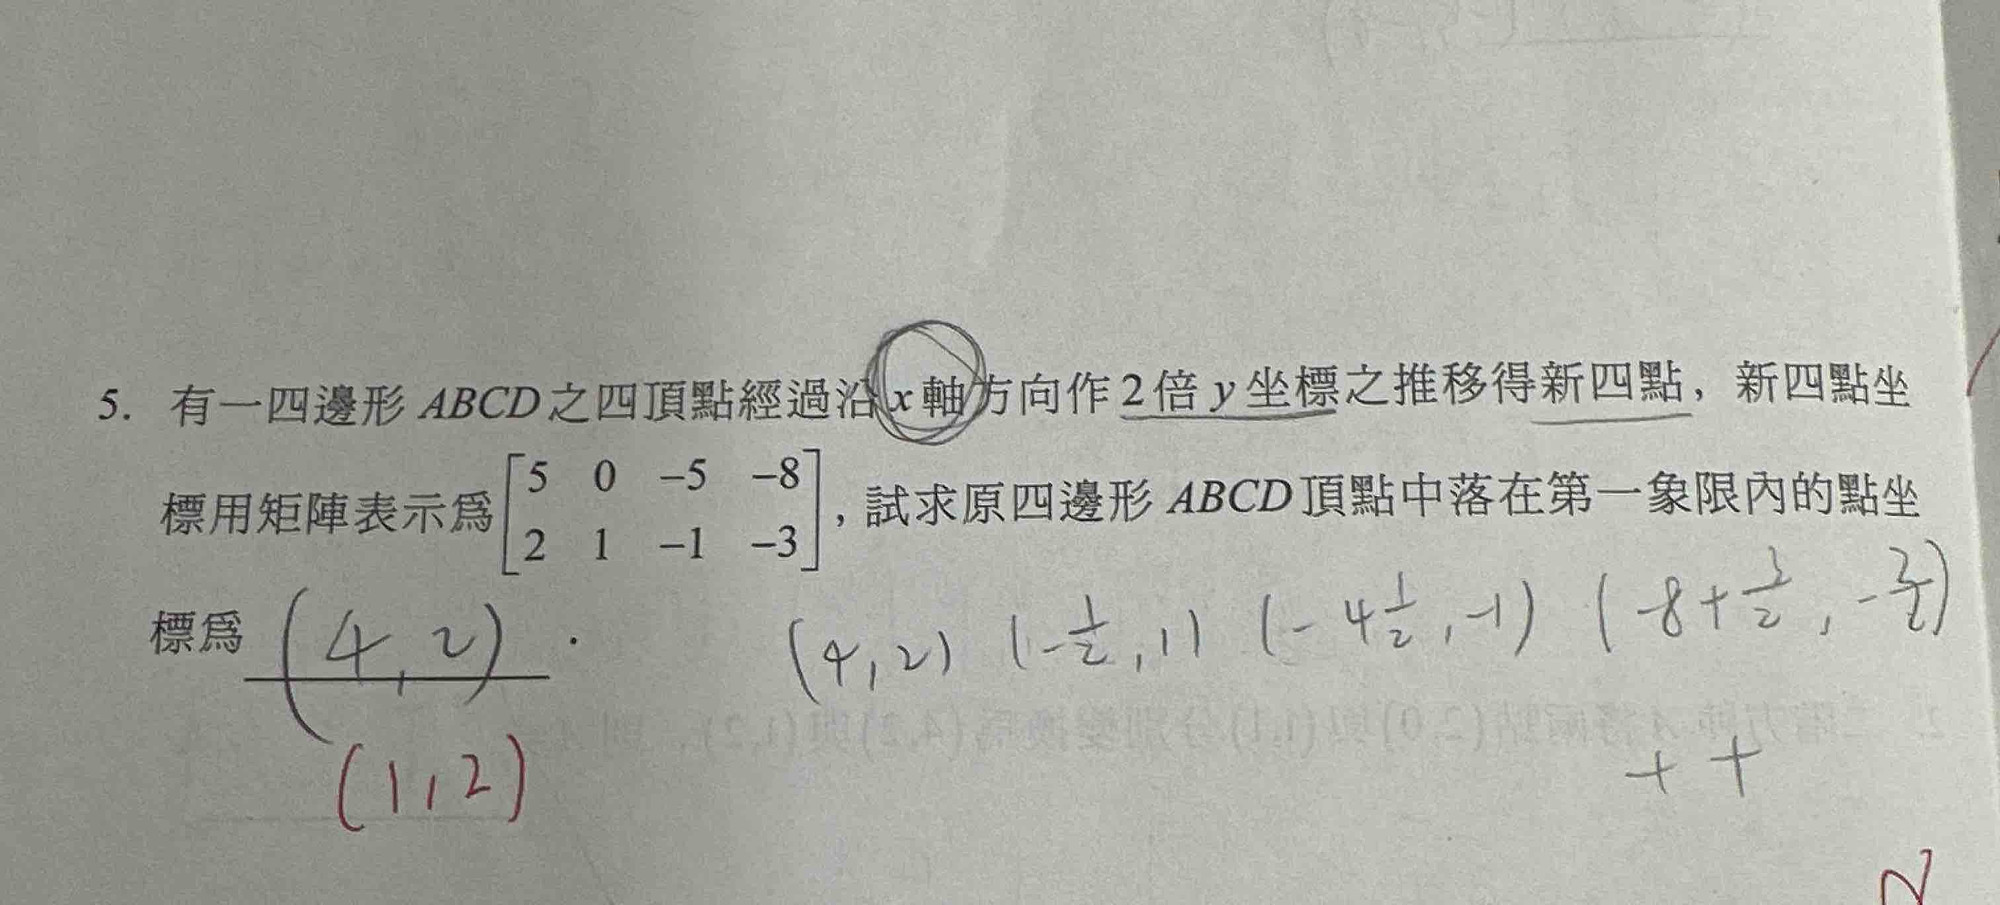 5. 有一四邊形 ABCD 之四頂點經過沿 x 軸方向作 2 倍 y 坐標之推移得新四點，新四點坐
標用矩陣表示為 [5 0 -5 -8
2 1 -1 -3]，試求原四邊形 ABCD 頂點中落在第一象限內的點坐
標為 (4,2) . (4,2) (-1/2,1) (-4 1/2,-1) (-8+3/2,-3/2)
(1,2)
+ +